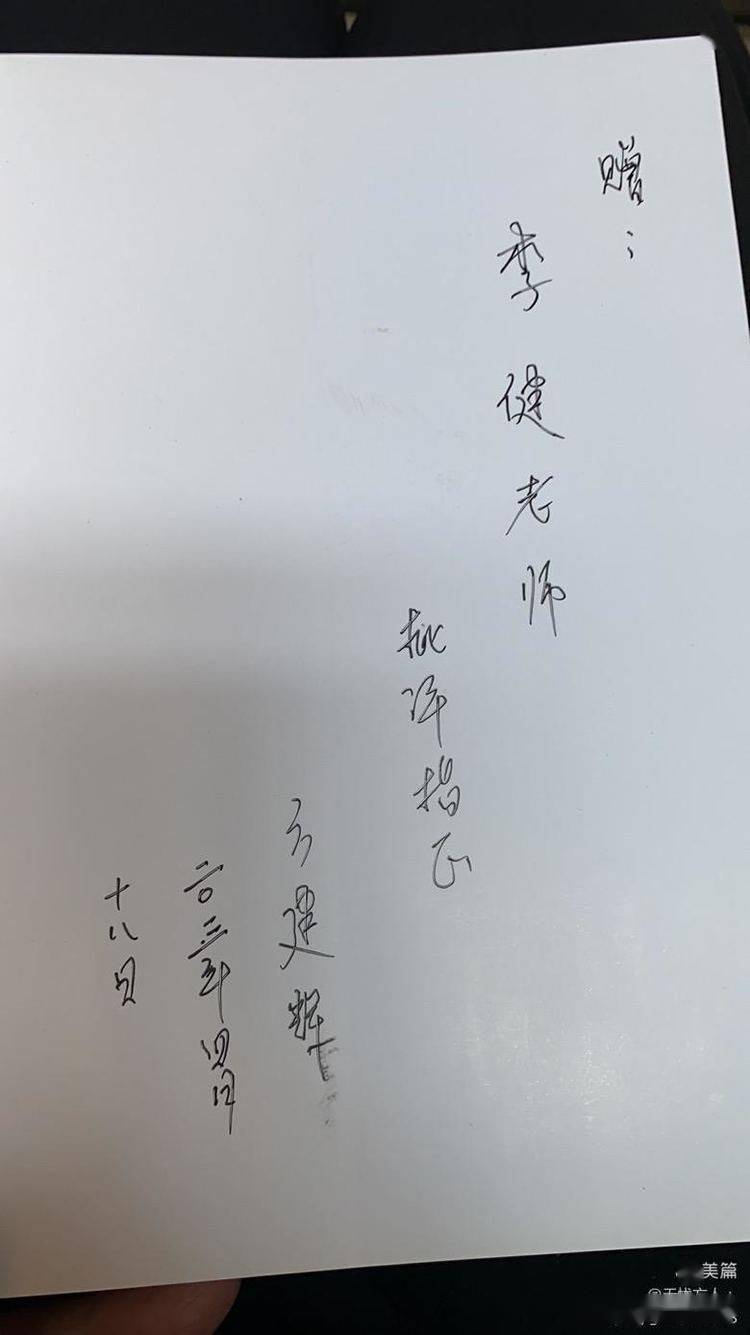 赠：
李健老师
批评指正
方建辉
二〇二三年四月
十八日
美篇